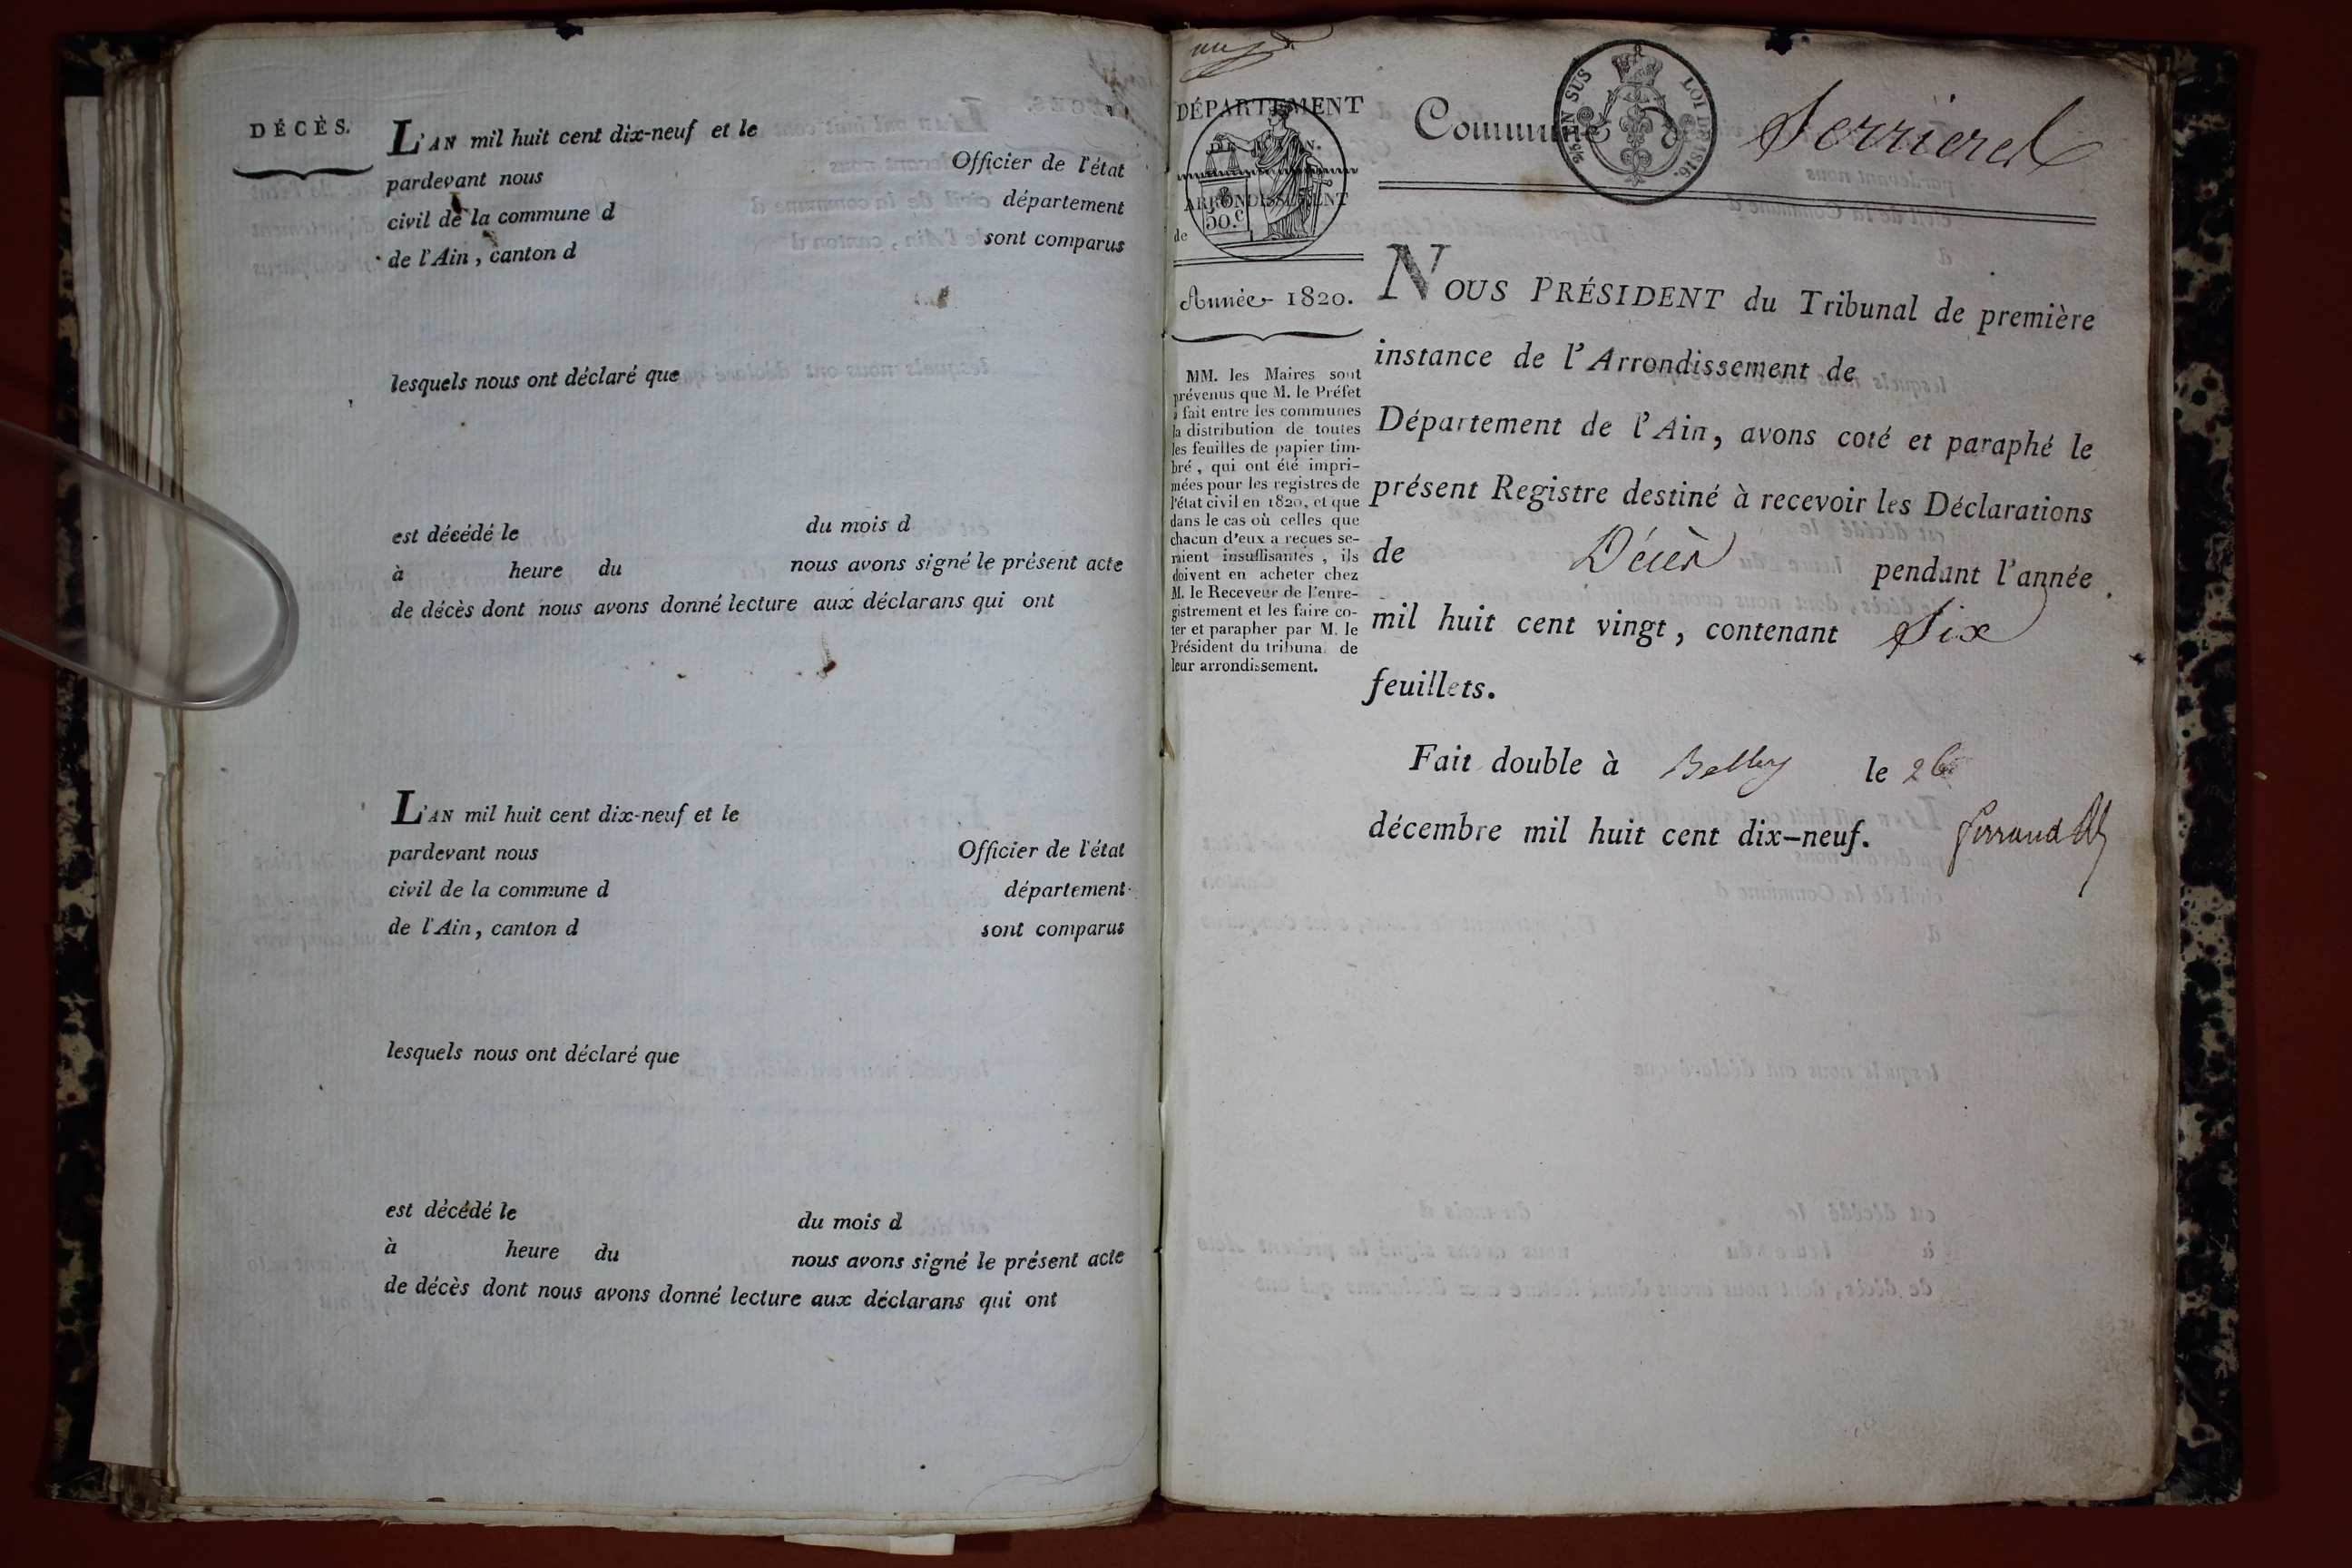 DÉCÈS.
L'AN mil huit cent dix-neuf et le
pardevant nous Officier de l'état
civil de la commune d département
de l'Ain, canton d sont comparus
lesquels nous ont déclaré que
est décédé le du mois d
à heure du nous avons signé le présent acte
de décès dont nous avons donné lecture aux déclarans qui ont
L'AN mil huit cent dix-neuf et le
pardevant nous Officier de l'état
civil de la commune d département
de l'Ain, canton d sont comparus
lesquels nous ont déclaré que
est décédé le du mois d
à heure du nous avons signé le présent acte
de décès dont nous avons donné lecture aux déclarans qui ont
DÉPARTEMENT
ARRONDISSEMENT
de
50.c
Année 1820.
MM. les Maires sont
prévenus que M. le Préfet
a fait entre les communes
la distribution de toutes
les feuilles de papier tim-
bré, qui ont été impri-
mées pour les registres de
l'état civil en 1820, et que
dans le cas où celles que
chacun d'eux a reçues se-
raient insuffisantes, ils
doivent en acheter chez
M. le Receveur de l'enre-
gistrement et les faire co-
ter et parapher par M. le
Président du tribunal de
leur arrondissement.
EN SUS
LOI DE 1816.
Commune d
NOUS PRÉSIDENT du Tribunal de première
instance de l'Arrondissement de
Département de l'Ain, avons coté et paraphé le
présent Registre destiné à recevoir les Déclarations
de Décès pendant l'année
mil huit cent vingt, contenant Six
feuillets.
Fait double à Belley le 26
décembre mil huit cent dix-neuf.